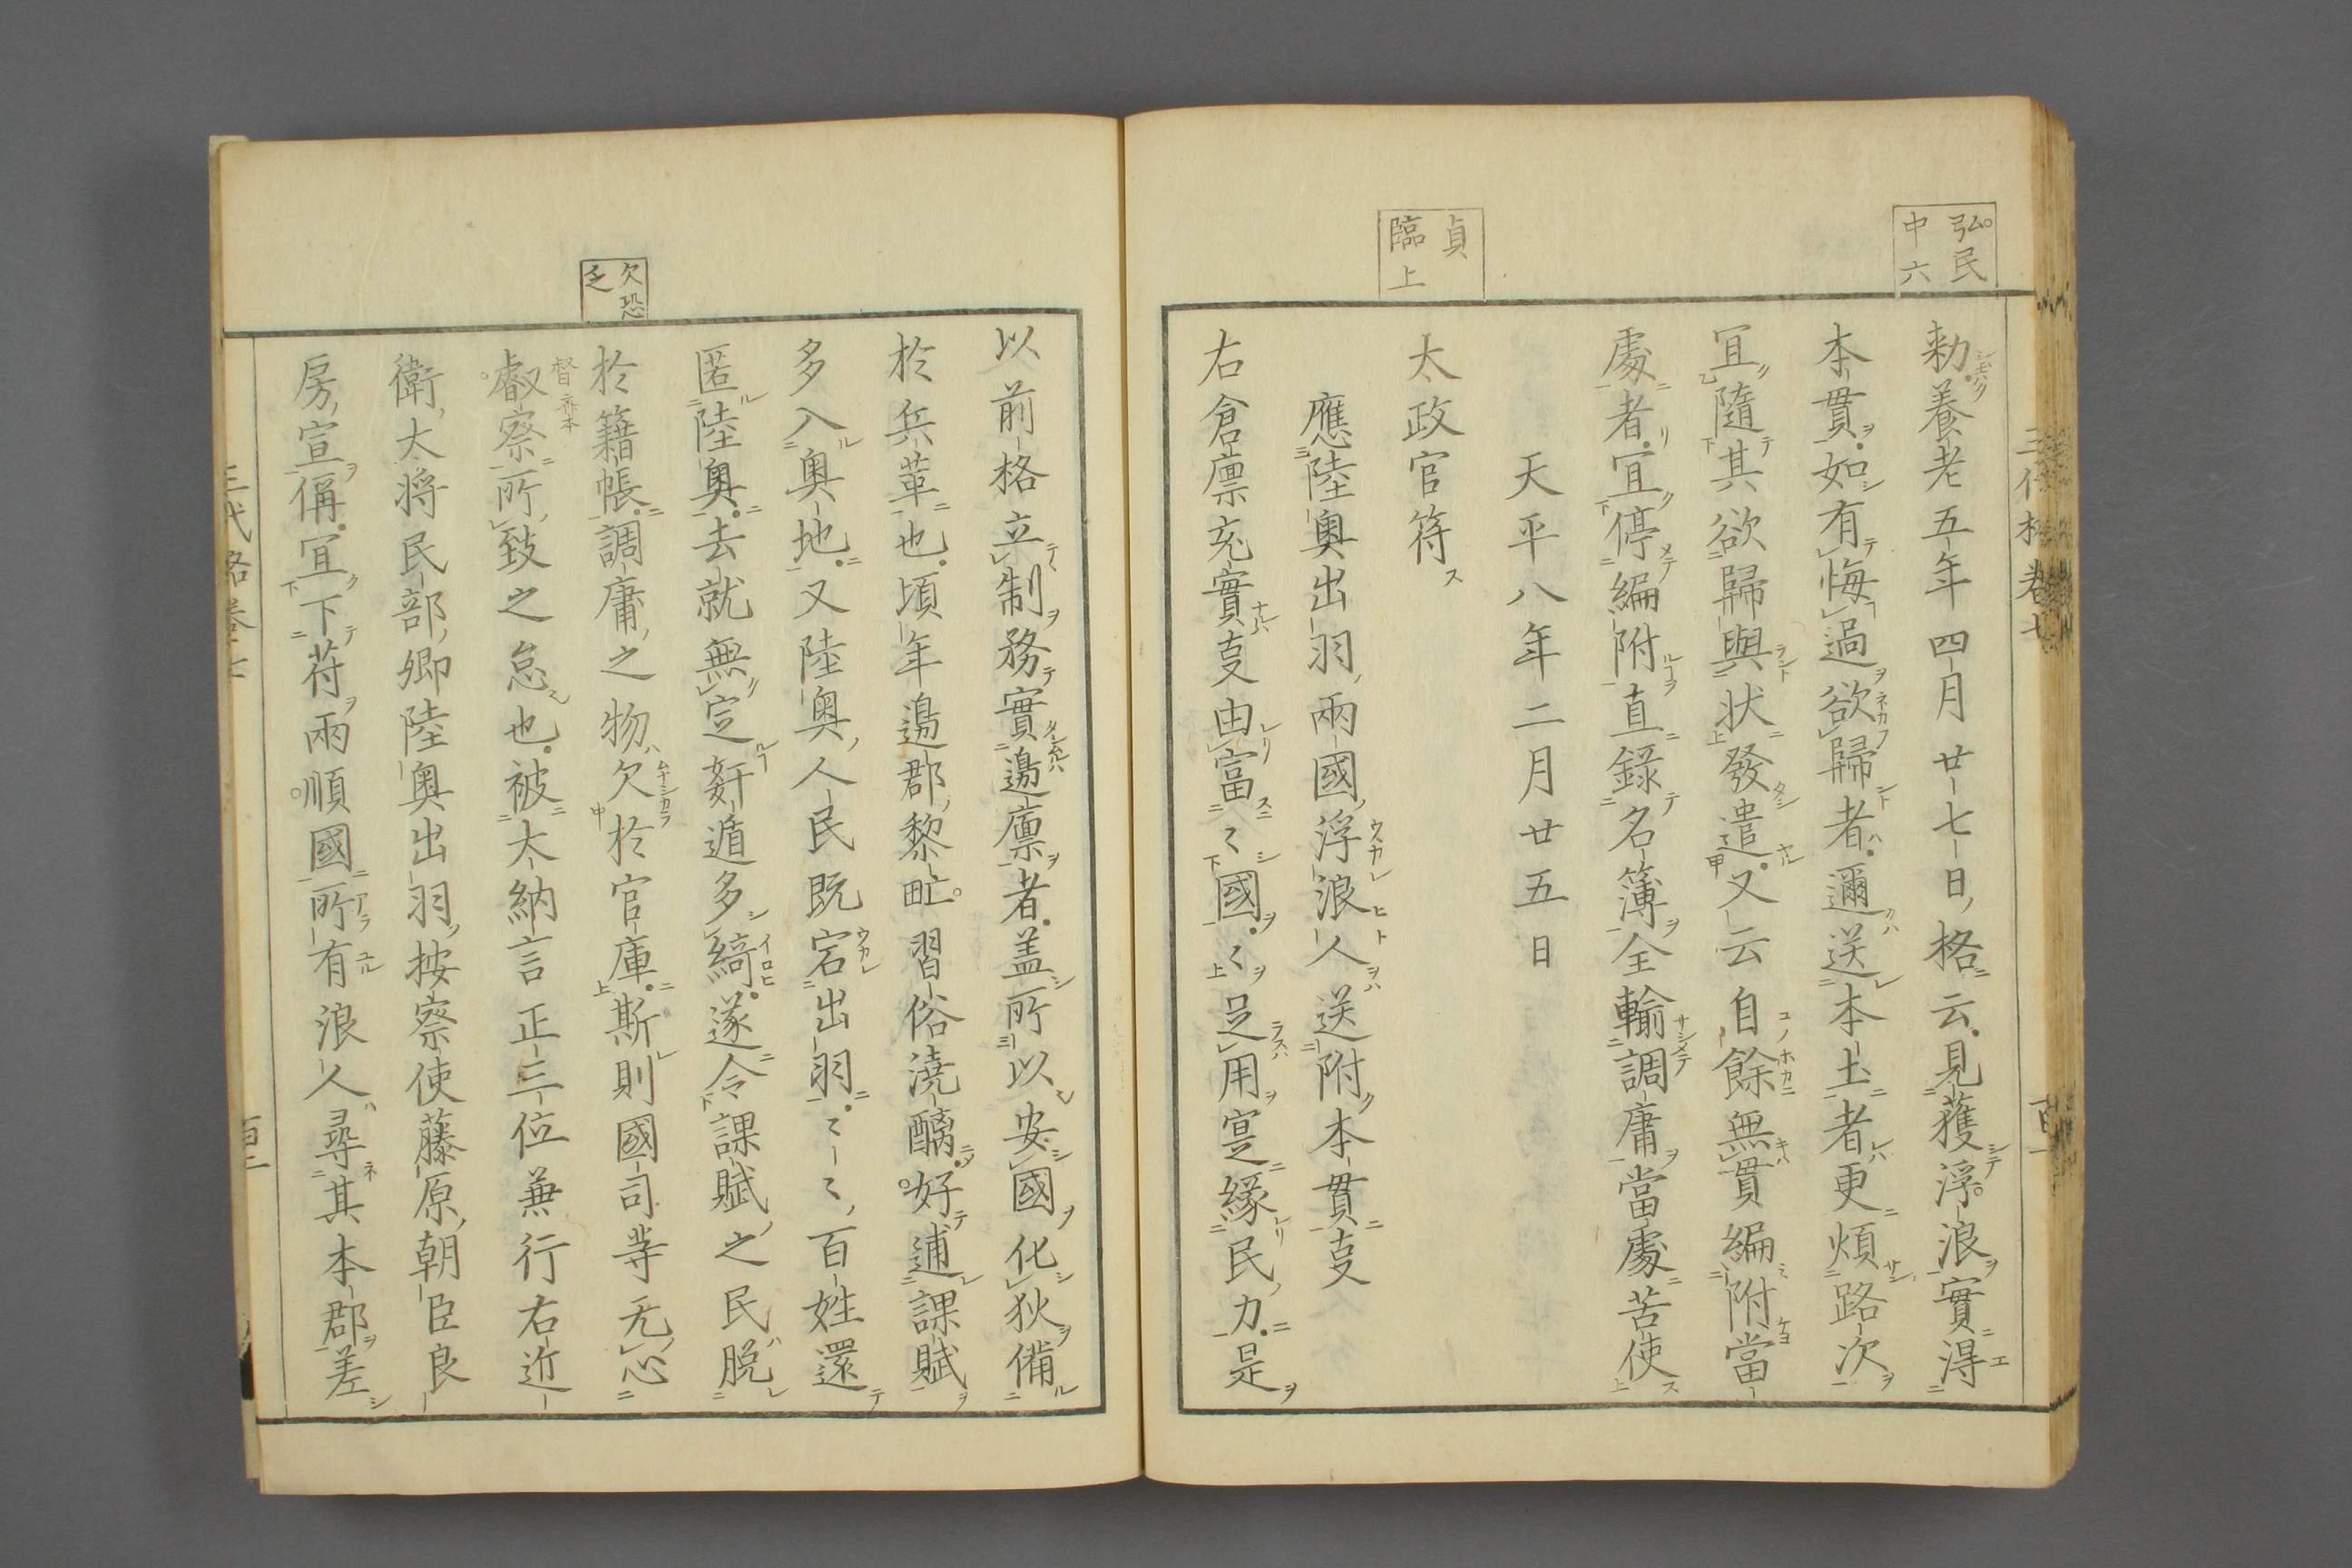 弘民
中六
勅養老五年四月廿七日格云見獲浮浪實得
本貫如有悔過欲歸者遞送本土者更煩路次
宜隨其欲歸與状發遣又云自餘無貫編附當
處者宜停編附直録名簿全輸調庸當處苦使
天平八年二月廿五日
貞
臨上
太政官符
應陸奥出羽兩國浮浪人送附本貫叓
右倉廪充實叓由富〻國〻足用寔縁民力是
以前格立制務實邉廪者盖所以安國化狄備
於兵革也頃年邉郡黎甿習俗澆醨好逋課賦
多入奥地又陸奥人民既宕出羽〻〻百姓還
匿陸奥去就無定姧遁多綺遂令課賦之民脱
欠恐
乏
於籍帳調庸之物欠於官庫斯則國司等无心
督 本
叡察所致之怠也被大納言正三位兼行右近
衛大将民部卿陸奥出羽按察使藤原朝臣良
房宣偁宜下苻兩順國所有浪人尋其本郡差
三代格卷七
百二